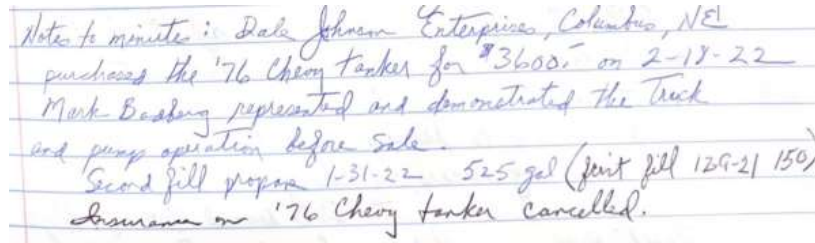 Notes to minutes: Dale Johnson Enterprises, Columbus, NE
purchased the '76 Chevy tanker for $3600.- on 2-18-22
Mark represented and demonstrated the Truck
and pump operation before sale.
Second fill propane 1-31-22 525 gal (first fill 150)
Insurance on '76 Chevy tanker cancelled.